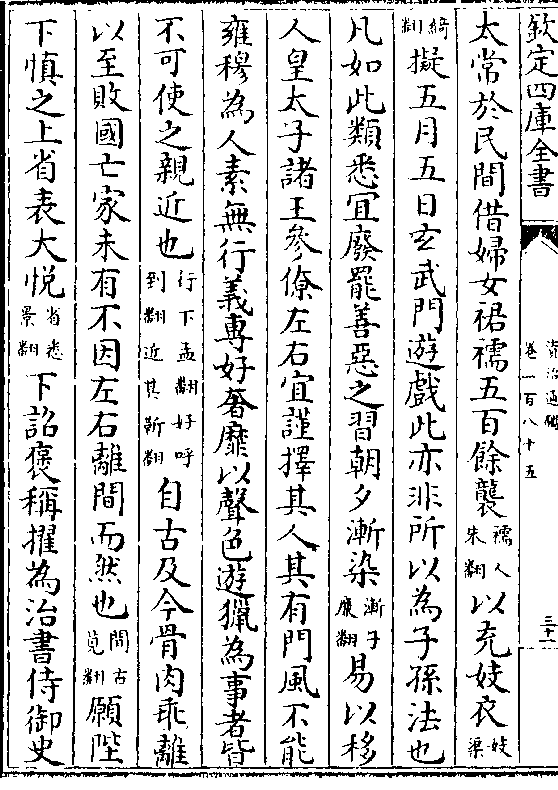 欽定四庫全書
資治通鑑
卷一百八十五
三十
太常於民間借婦女裙襦五百餘襲襦人朱翻以充妓衣妓渠
綺翻擬五月五日玄武門遊戲此亦非所以為子孫法也
凡如此類悉宜廢罷善惡之習朝夕漸染漸子廉翻易以移
人皇太子諸王參僚左右宜謹擇其人其有門風不能
雍穆為人素無行義專好奢靡以聲色遊獵為事者皆
不可使之親近也行下孟翻好呼到翻近其靳翻自古及今骨肉乖離
以至敗國亡家未有不因左右離間而然也間古莧翻願陛
下慎之上省表大悅省悉景翻下詔褒稱擢為治書侍御史